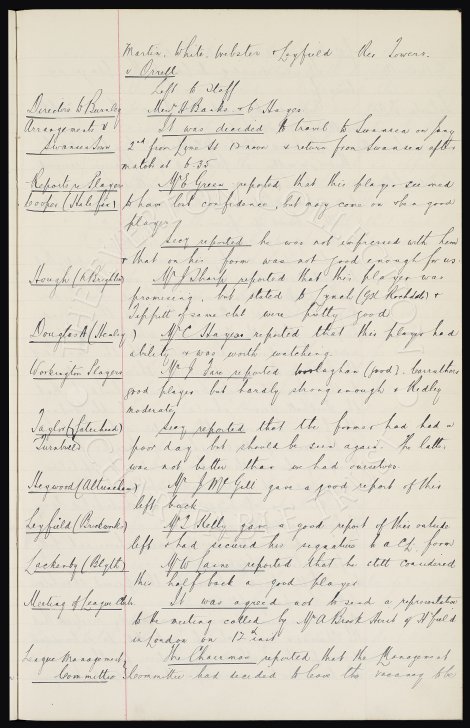 Martin, White, Webster & Leyfield the Towers.
v Orrell
Left to Staff
Directors to Burnley Messrs H Banks & C Hayes
Arrangements v It was decided to travel to Swansea on Jany
Swansea Town 2nd from Lime St 12 noon & return from Swansea after
match at 6-35
Reports re Players Mr E Green reported that this player seemed
Cooper (Halifax) to have lost confidence, but may come on to a good
player
Secy reported he was not impressed with him
& that on his form was not good enough for us.
Hough (N. Brighton) Mr J Sharp reported that this player was
promising, but stated Lynch (Gt Rochdale) &
of same club were pretty good
Douglas A (Hanley) Mr C Hayes reported that this player had
ability & was worth watching.
Workington Players Mr J reported (good). Carruthers
good player but hardly strong enough & Hedley
moderate
Taylor (Gateshead) Secy reported that the former had had a
poor day but should be seen again. The latter
was not better than we had ourselves.
Heywood (Altrincham) Mr J McGill gave a good report of this
left back
Leyfield (Brickworks) Mr L Kelly gave a good report of this outside
left & had secured his signature to a C.L. form
Lackenby (Blyth) Mr W reported that he still considered
this half back a good player
Meeting of League Clubs It was agreed not to send a representative
to the meeting called by Mr A Brook Hirst of H'field
in London on 17th inst
League Management The Chairman reported that the Management
Committee Committee had decided to leave the vacancy to be